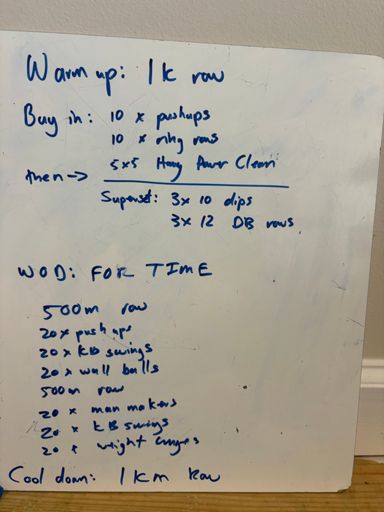 Warm up: 1k row
Buy in: 10 x pushups
10 x ring rows
5x5 Hang Power Clean
then →
Superset: 3x 10 dips
3x 12 DB rows
WOD: FOR TIME
500m row
20x push ups
20x KB swings
20x wall balls
500m row
20 x man makers
20 x KB swings
20 x weight
Cool down: 1km Row